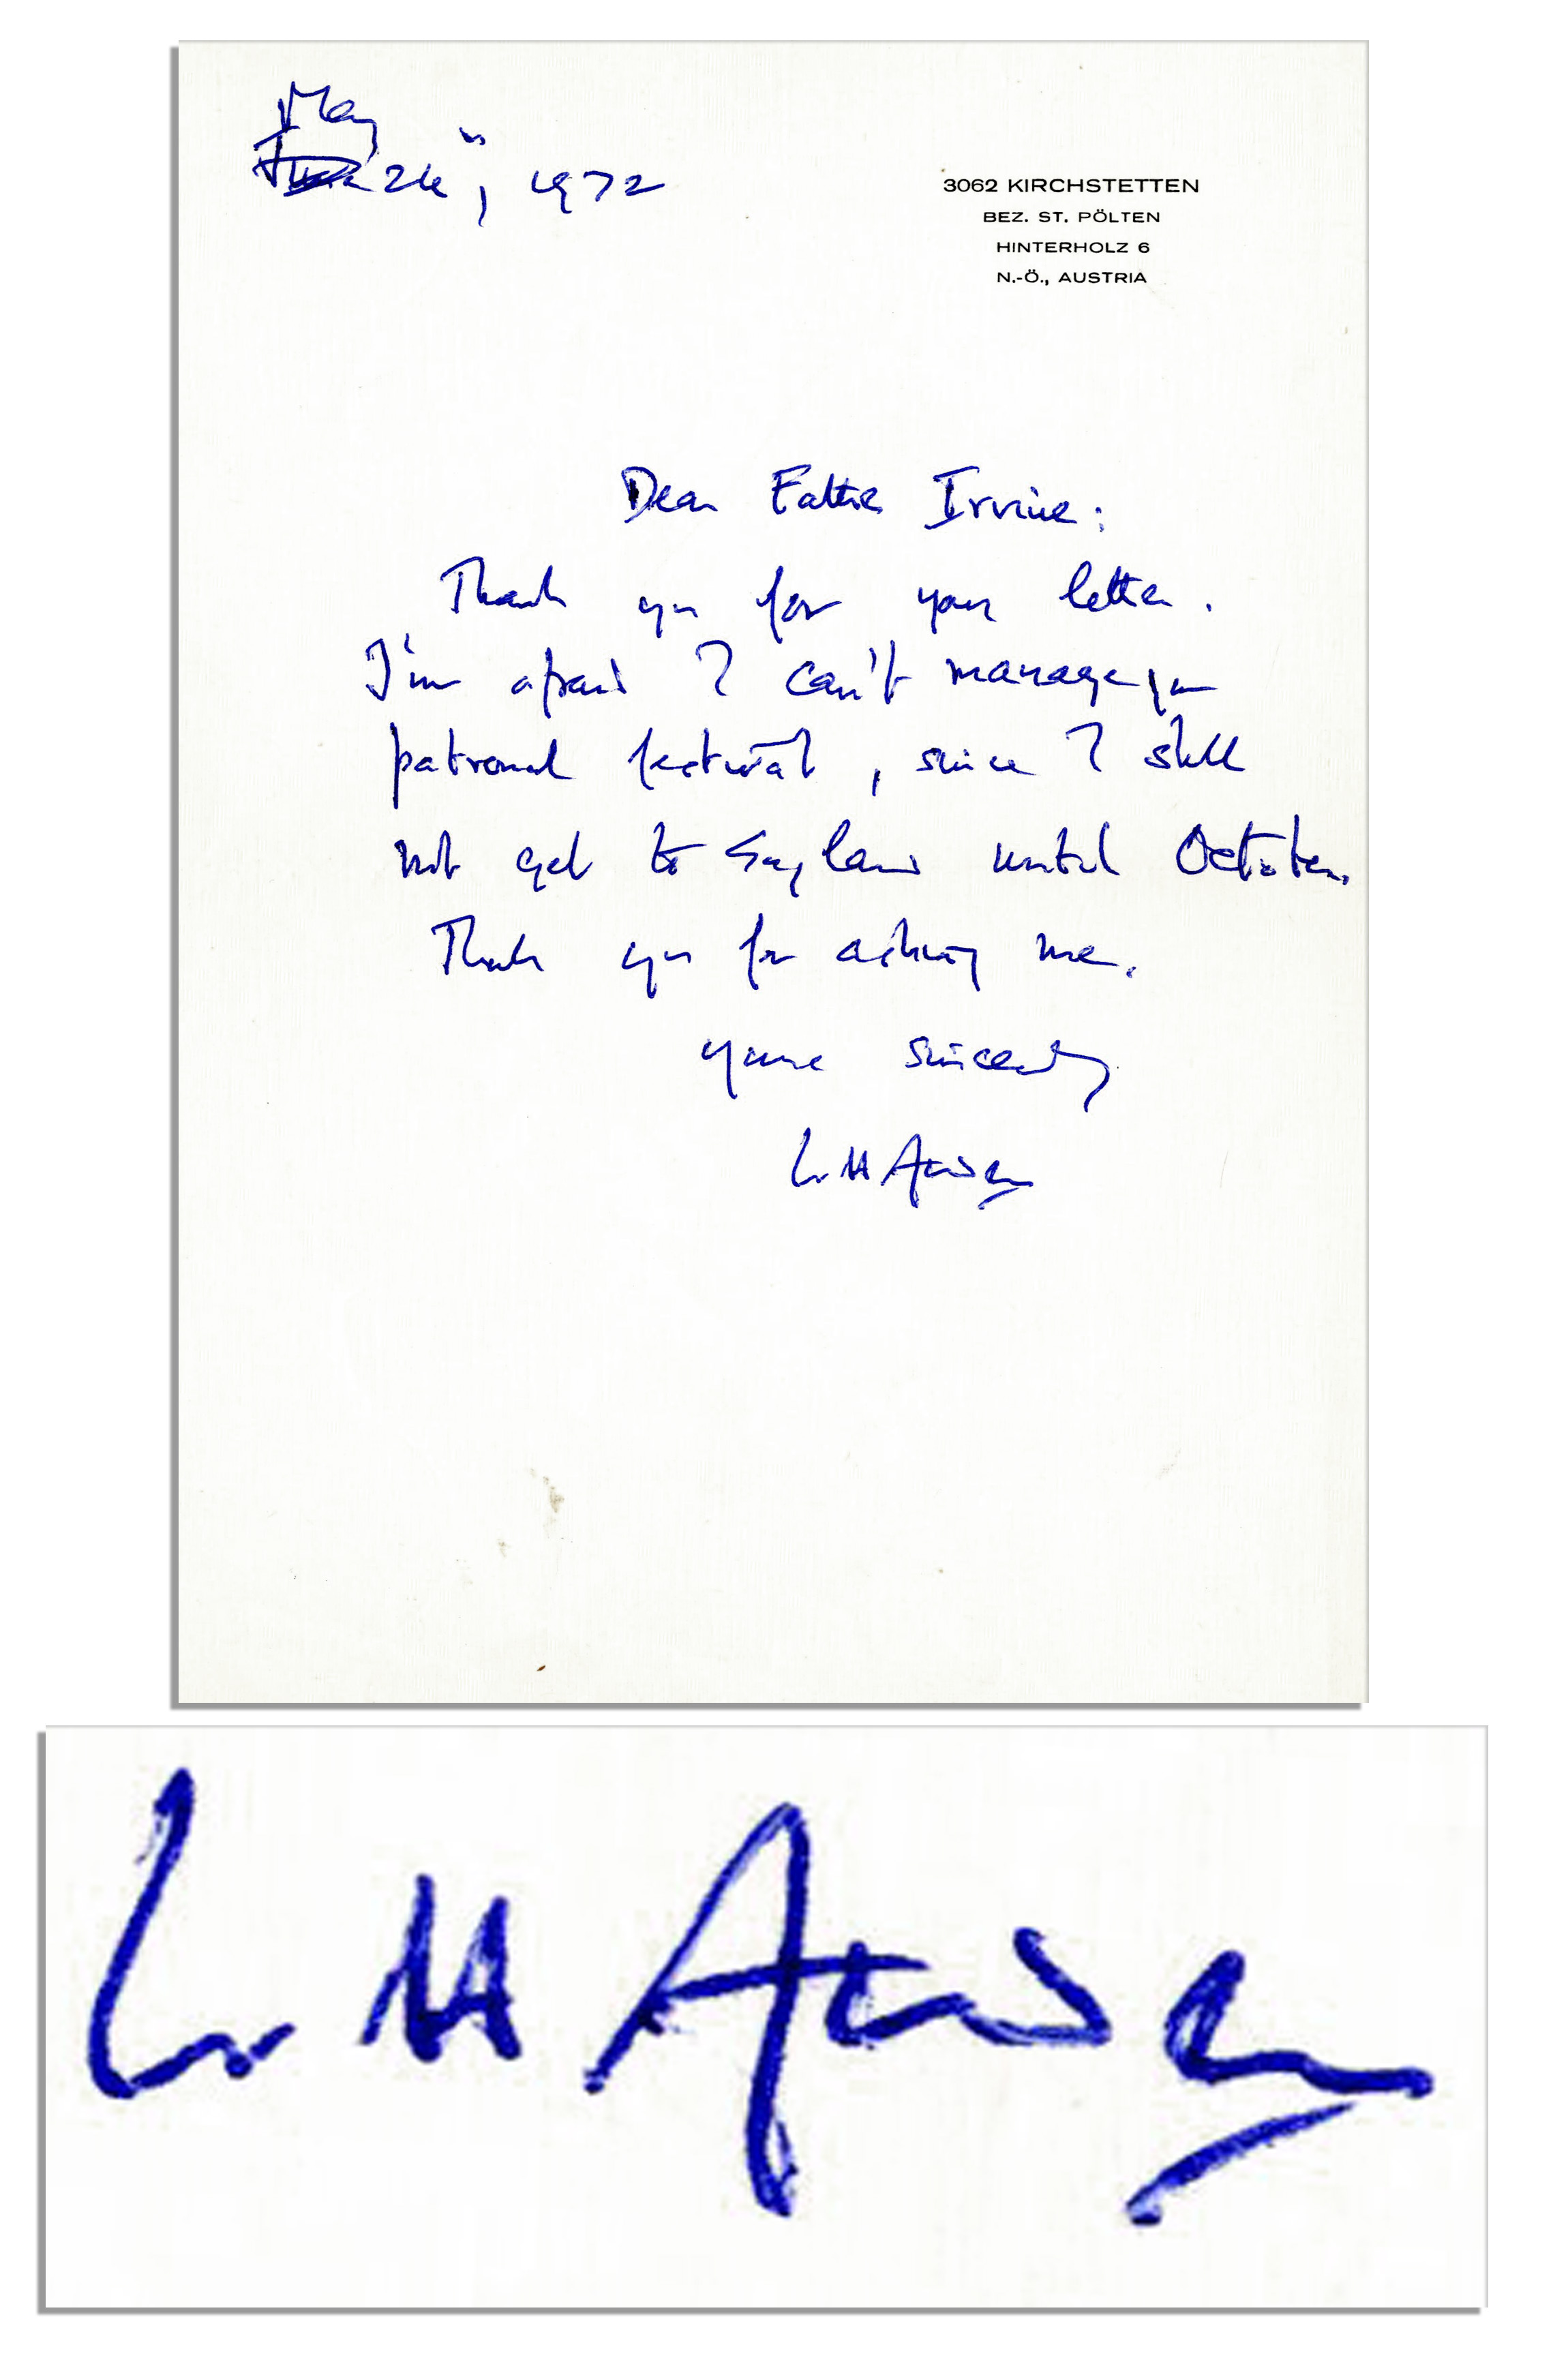 May
24", 1972
3062 KIRCHSTETTEN
BEZ. ST. PÖLTEN
HINTERHOLZ 6
N.-Ö., AUSTRIA
Dear Father Irvine:
Thank you for your letter.
I'm afraid I can't manage your
patronal festival, since I shall
not get to England until October.
Thank you for asking me.
yours sincerely
W H Auden
W H Auden